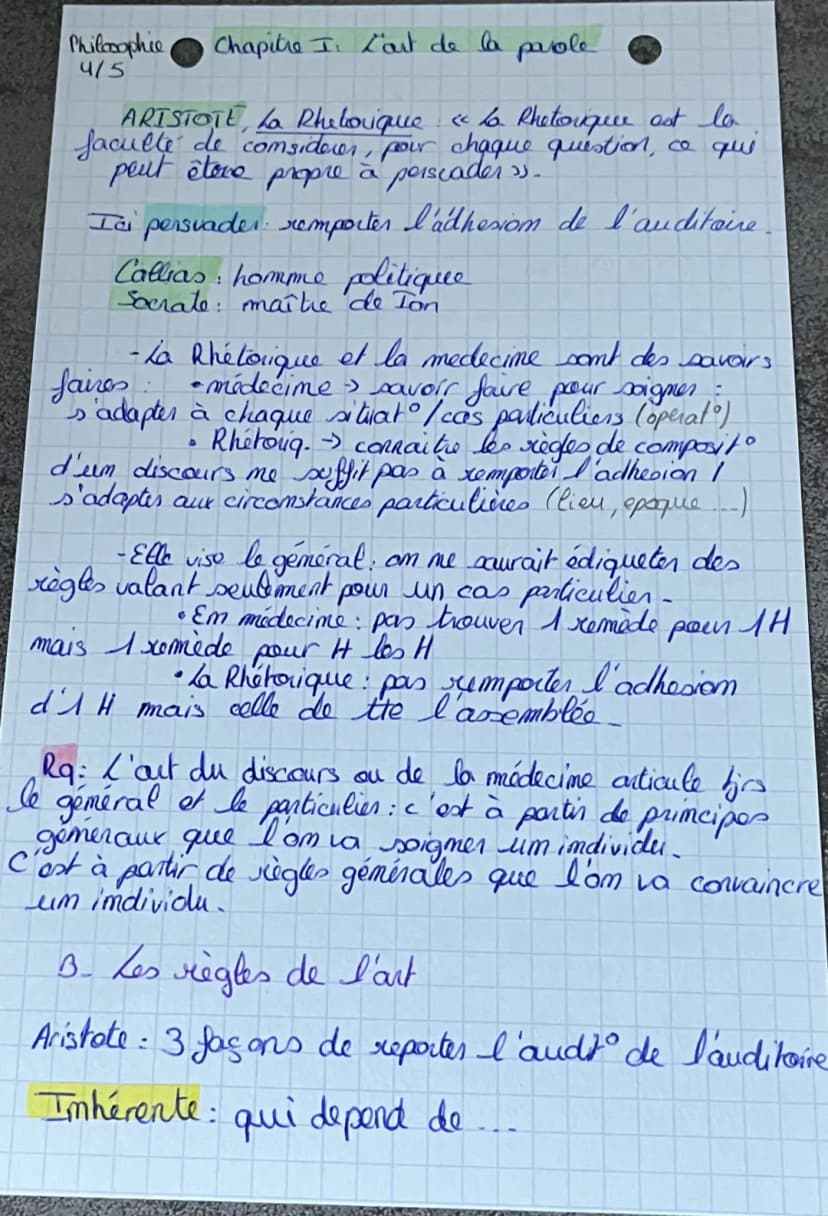 Philosophie Chapitre I: L'art de la parole
4/5
ARISTOTE, La Rhétorique : « La Rhétorique est la
faculté de considerer, pour chaque question, ce qui
peut être propre à perscader ».
Ici persuader : remporter l'adhesion de l'auditoire.
Callias : homme politique
Socrate : maître de Ion
- La Rhétorique et la medecine sont des savoirs
faires : • médecine → savoir faire pour soigner :
s'adapter à chaque situat° / cas particuliers (opérat°)
• Rhétoriq. → connaitre les règles de composit°
d'un discours ne suffit pas à remporter l'adhesion /
s'adapter aux circonstances particulières (lieu, epoque ...)
- Elle vise le général : on ne saurait édiqueter des
règles valant seulement pour un cas particulier.
• En médecine : pas trouver 1 remède pour 1H
mais 1 remède pour H les H
• La Rhétorique : pas remporter l'adhesion
d'1 H mais celle de tte l'assemblée.
Rq : L'art du discours ou de la médecine articule tjrs
le général et le particulier : c'est à partir de principes
généraux que l'on va soigner un individu.
C'est à partir de règles générales que l'on va convaincre
un individu.
B- Les règles de l'art
Aristote : 3 façons de reporter l'audt° de l'auditoire
Inhérente : qui depend de ...